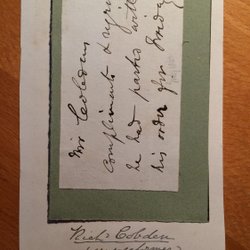 Mr Cobdens
compliments & regrets
he had parted with
his order for Friday
Richd Cobden